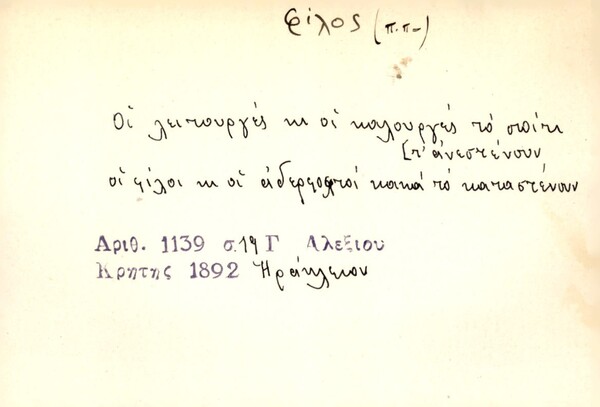 φίλος (π.π-)
Οἱ λειτουργές κι οἱ καλουργές τό σπίτι
[τ' ἀνεστένουν
οἱ φίλοι κι οἱ ἀδερφοχτοί κακά τό καταστένουν
Αριθ. 1139 σ. 19 Γ Αλεξίου
Κρητης 1892 Ἡράκλειον